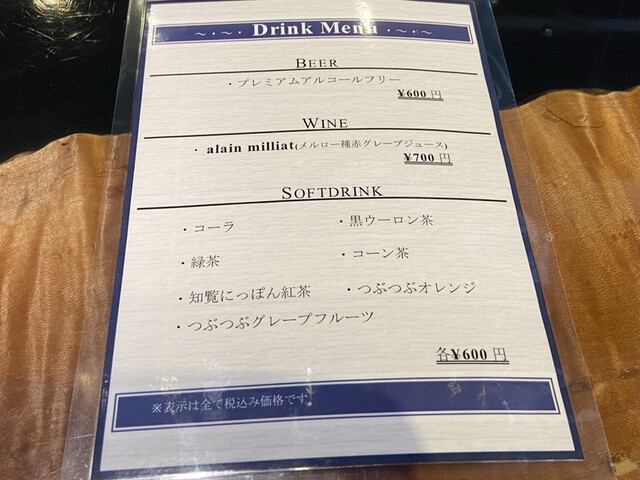 ～・～・ Drink Menu ・～・～
BEER
・プレミアムアルコールフリー
¥600 円
WINE
・ alain milliat(メルロー種赤グレープジュース)
¥700 円
SOFTDRINK
・コーラ ・黒ウーロン茶
・緑茶 ・コーン茶
・知覧にっぽん紅茶 ・つぶつぶオレンジ
・つぶつぶグレープフルーツ
各¥600 円
※表示は全て税込み価格です。